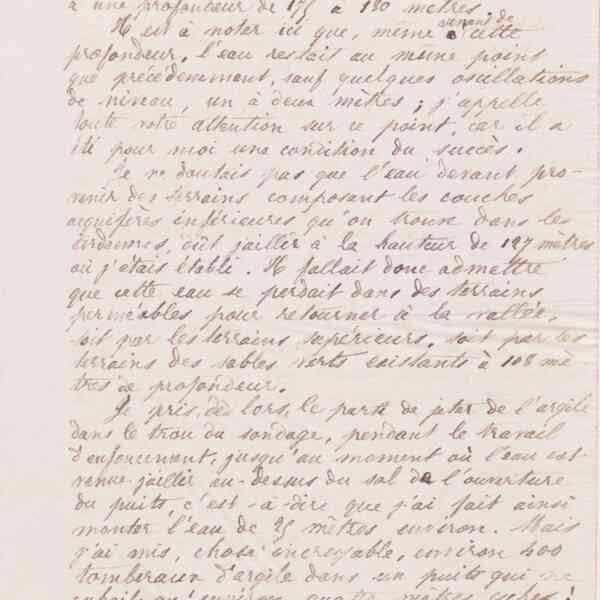 à une profondeur de 175 à 180 mètres.
Il est à noter ici que, même venant de cette
profondeur, l'eau restait au même point
que précédemment, sauf quelques oscillations
de niveau, un à deux mètres ; j'appelle
toute votre attention sur ce point, car il a
été pour moi une condition du succès.
Je ne doutais pas que l'eau devant pro-
venir des terrains composant les couches
aquifères inférieures qu'on trouve dans les
Ardennes, dût jaillir à la hauteur de 127 mètres
où j'étais établi. Il fallait donc admettre
que cette eau se perdait dans des terrains
perméables pour retourner à la vallée,
soit par les terrains supérieurs, soit par les
terrains des sables verts existants à 108 mè-
tres de profondeur.
Je pris, dès lors, le parti de jeter de l'argile
dans le trou du sondage, pendant le travail
d'enfoncement, jusqu'au moment où l'eau est
venue jaillir au-dessus du sol de l'ouverture
du puits, c'est-à-dire que j'ai fait ainsi
monter l'eau de 25 mètres environ. Mais
j'ai mis, chose incroyable, environ 400
tombereaux d'argile dans un puits qui ne
cubait qu'environ quatre mètres cubes !